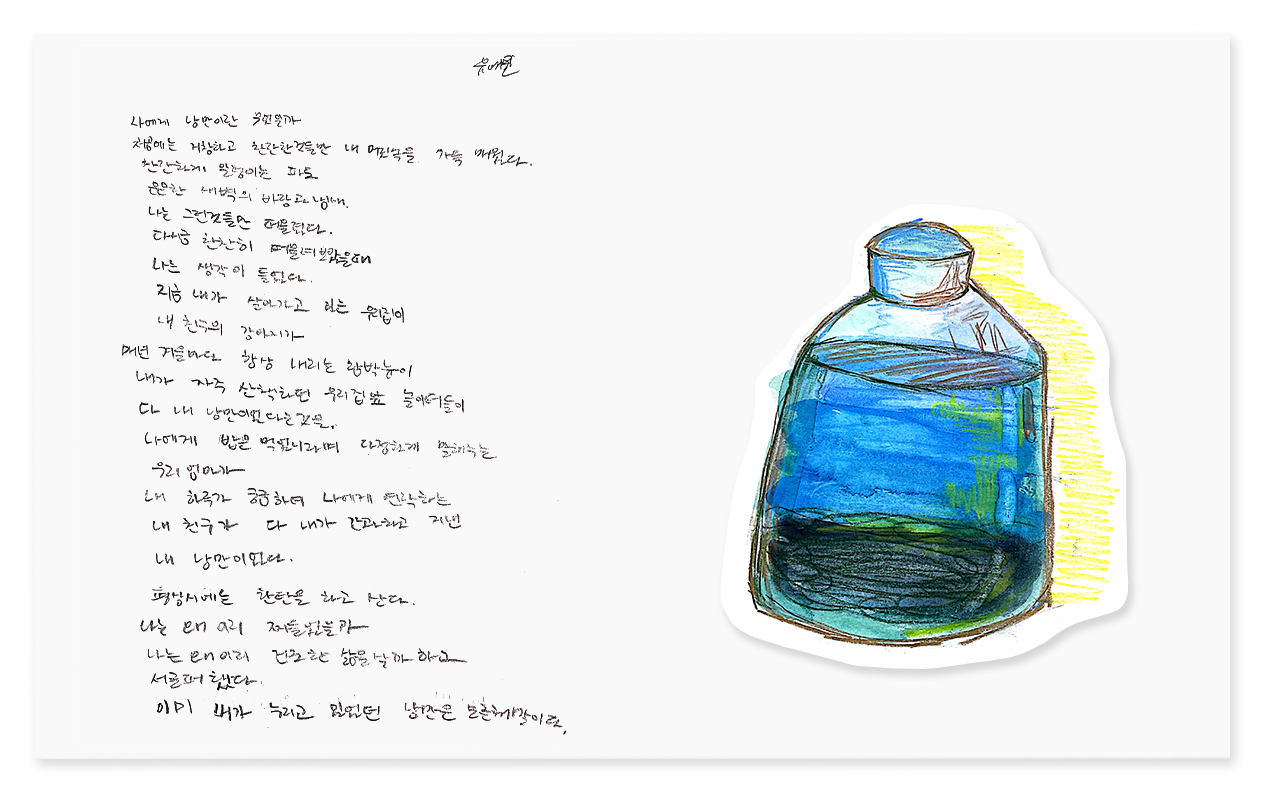 나에게 낭만이란 무엇일까
처음에는 거창하고 찬란한것들만 내 머릿속을 가득 매웠다.
찬란하게 일렁이는 파도
은은한 새벽의 바람과 냄새.
나는 그런것들만 떠올렸다.
다시금 찬찬히 떠올려보았을때
나는 생각이 들었다.
지금 내가 살아가고 있는 우리집이
내 친구의 강아지가
매년 겨울마다 항상 내리는 함박눈이
내가 자주 산책하던 우리집앞 놀이터들이
다 내 낭만이었다는것을.
나에게 밥은 먹었니라며 다정하게 말해주는
우리 엄마가
내 하루가 궁금하여 나에게 연락하는
내 친구가 다 내가 간과하고 지낸
내 낭만이였다.
평상시에는 한탄을 하고 산다.
나는 왜 이리
나는 왜 이리 건조한 삶을 살까 하고
서글퍼 했다.
이미 내가 누리고 있었던 낭만은